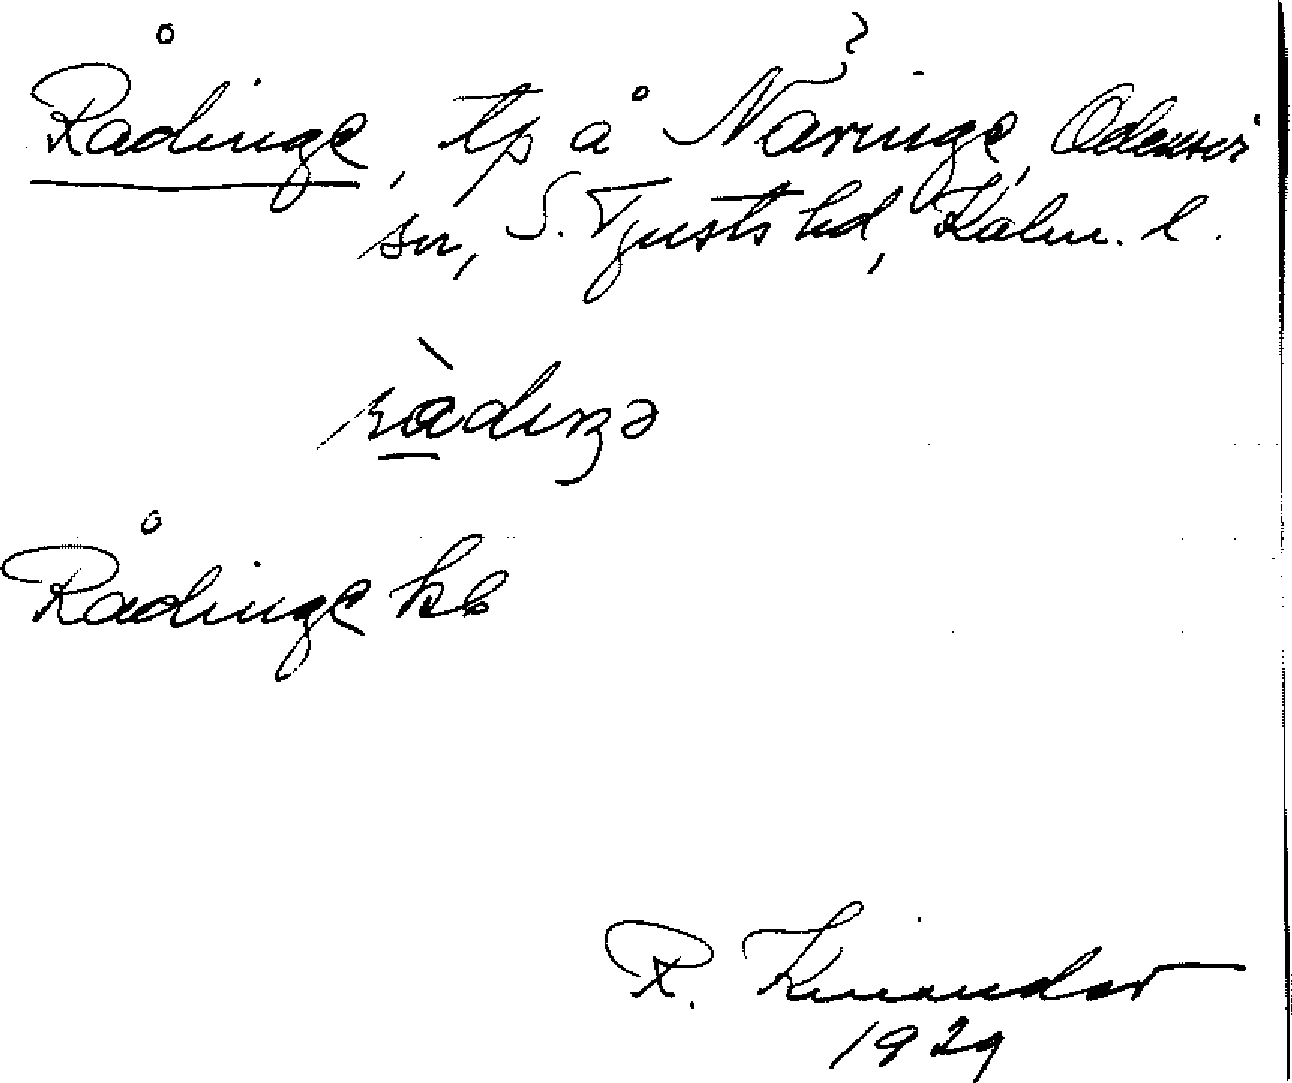 Rådinge, tp å Näringe, Odensvi
sn, S. Tjusts hd, Kalm. l.
ràdiŋə
Rådinge kb
R. Kinander
1929